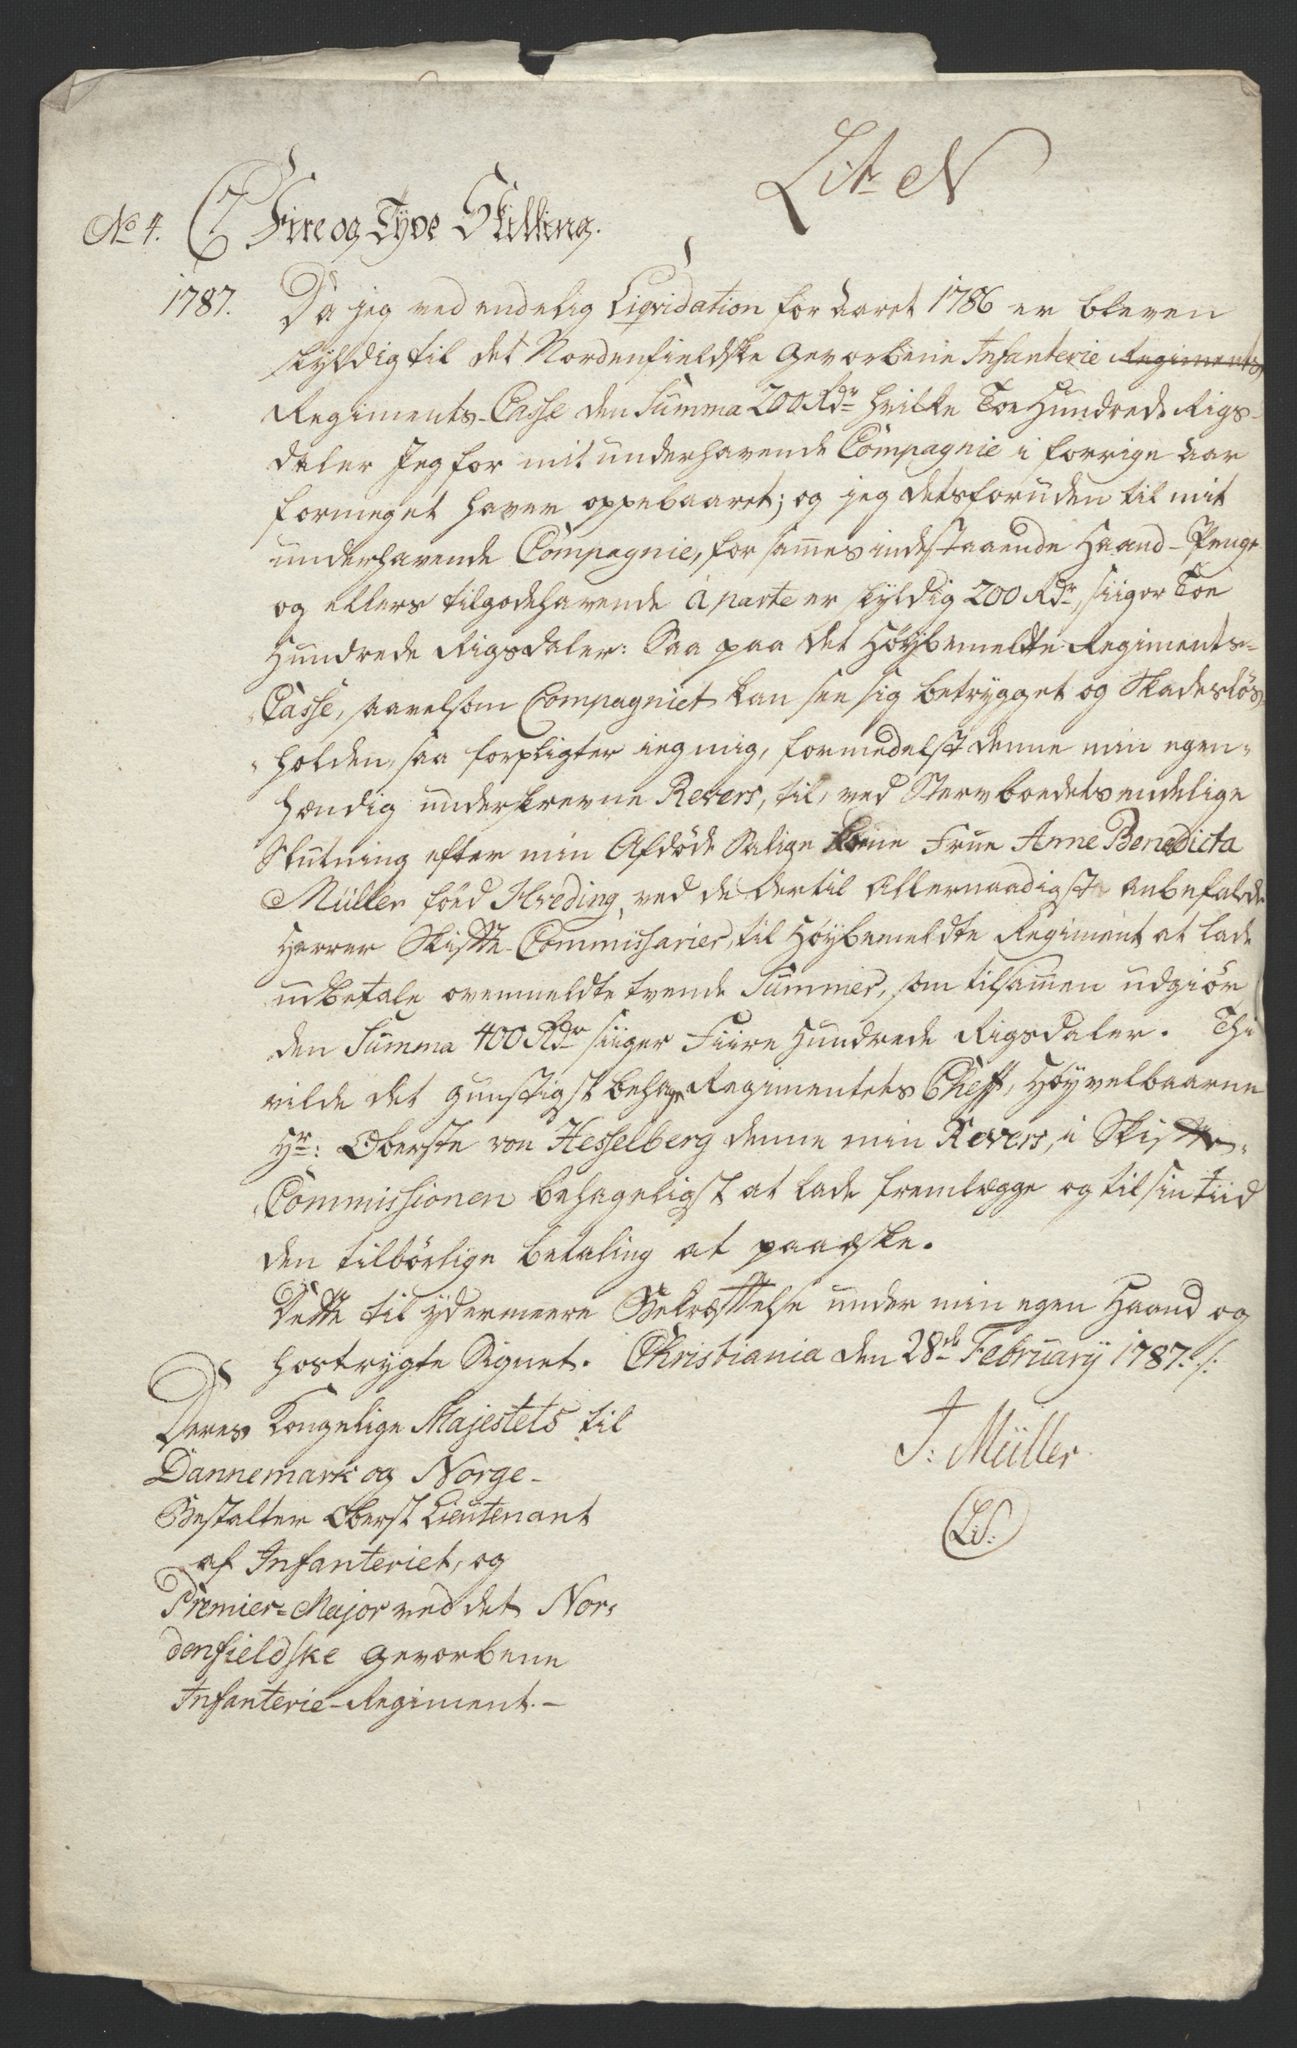 Lit: N
No 4. C7 Fire og Tyve Skilling.
1787. Da jeg ved endelig Liqvidation for Aaret 1786 er bleven
skyldig til det Nordenfieldske Gevorbene Infanterie Regiments
Regiments-Casse den Summa 200 Rdr hvilke Toe Hundrede Rigs-
daler Jeg for mit underhavende Compagnie i forrige Aar
formeget haver oppebaaret; og jeg detsforuden til mit
underhavende Compagnie, for sammes indestaaende Haand-Penge
og ellers tilgodehavende à parte er skyldig 200 Rdr, siiger Toe
Hundrede Rigsdaler: Saa paa det Høybemeldte Regiments-
Casse, saavelsom Compagniet kan see sig betrygget og Skadesløs
holden, saa forpligter ieg mig, formedelst denne min egen-
hændig underskrevne Revers, til, ved Sterboedets endelige
Slutning efter min Afdøde Salige Kone Frue Anne Benedicta
Müller fød Hveding, ved de dertil Allernaadigst anbefalede
Herrer Skifte-Commissarier, til Høybemeldte Regiment at lade
udbetale ovenmeldte tvende Summer, som tilsammen udgiør
den Summa 400 Rdr siiger Fiire Hundrede Rigsdaler. Thi
vilde det gunstigst behage Regimentets Cheff, Høyvelbaarne
Hr: Oberste von Hesselberg denne min Revers, i Skifte-
Commissionen behageligst at lade fremlægge og til sin tiid
den tilbørlige betaling at paaæske.
Dette til ydermeere Bekræftelse under min egen Haand og
hostrygte Signet. Christiania den 28de February 1787 ./.
Deres Kongelige Majestets til
Dannemark og Norge-
Bestalter Oberst Lieutenant
af Infanteriet, og
Premier-Major ved det Nor-
denfieldske Gevorbene
Infanterie-Regiment.-
J: Müller
LS: